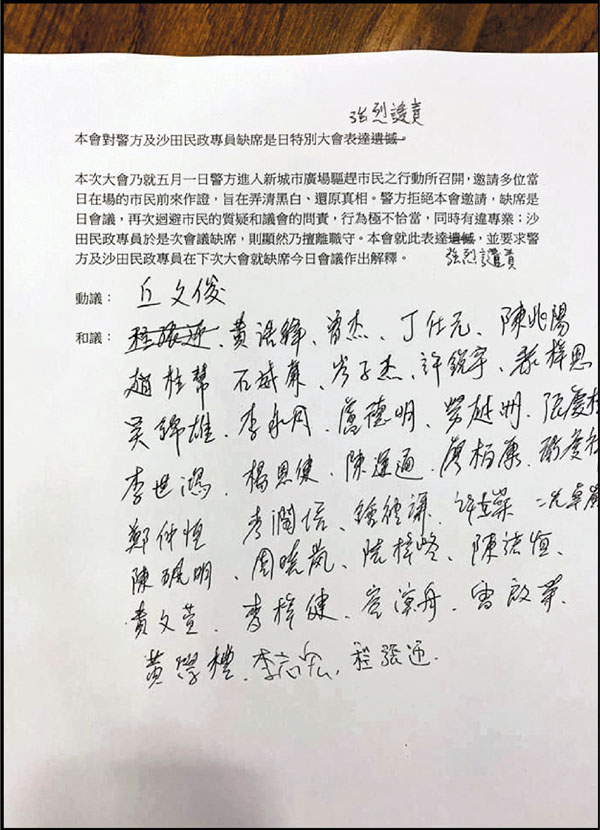 強烈譴責
本會對警方及沙田民政專員缺席是日特別大會表達遺憾。
本次大會乃就五月一日警方進入新城市廣場驅趕市民之行動所召開，邀請多位當
日在場的市民前來作證，旨在弄清黑白、還原真相。警方拒絕本會邀請，缺席是
日會議，再次迴避市民的質疑和議會的問責，行為極不恰當，同時有違專業；沙
田民政專員於是次會議缺席，則顯然乃擅離職守。本會就此表達遺憾，並要求警
強烈譴責
方及沙田民政專員在下次大會就缺席今日會議作出解釋。
動議： 丘文俊
和議： 程張迎、黃浩鋒、曾杰、丁仕元、陳兆陽
趙柱幫、石威廉、岑子杰、許銳宇、梓恩
吳錦雄、李永成、盧德明、勞越洲、
李世鴻、楊思健、陳運通、廖柏康、
鄭仲恒、麥潤培、鍾禮謙、許立燊、冼卓嵐
陳珮明、周曉嵐、陸梓峰、陳諾恒、
黃文萱、麥梓健、容溟舟、
黃學禮、李志宏、程張迎.